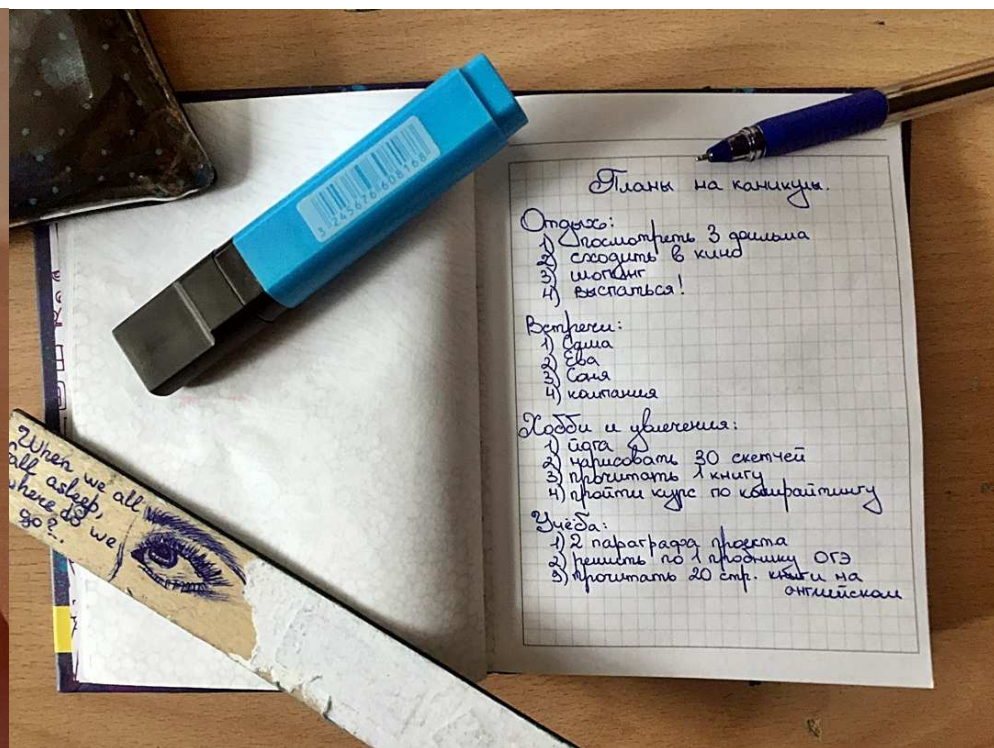 Планы на каникулы.
Отдых:
1) посмотреть 3 фильма
2) сходить в кино
3) шопинг
4) выспаться!
Встречи:
1) Сома
2) Ева
3) Соня
4) компания
Хобби и увлечения:
1) йога
2) нарисовать 30 скетчей
3) прочитать 1 книгу
4) пройти курс по копирайтингу
Учёба:
1) 2 параграфа проекта
2) решить по 1 пробнику ОГЭ
3) прочитать 20 стр. книги на
английском
3 245676 608168
When we all
fall asleep,
where do we
go?..